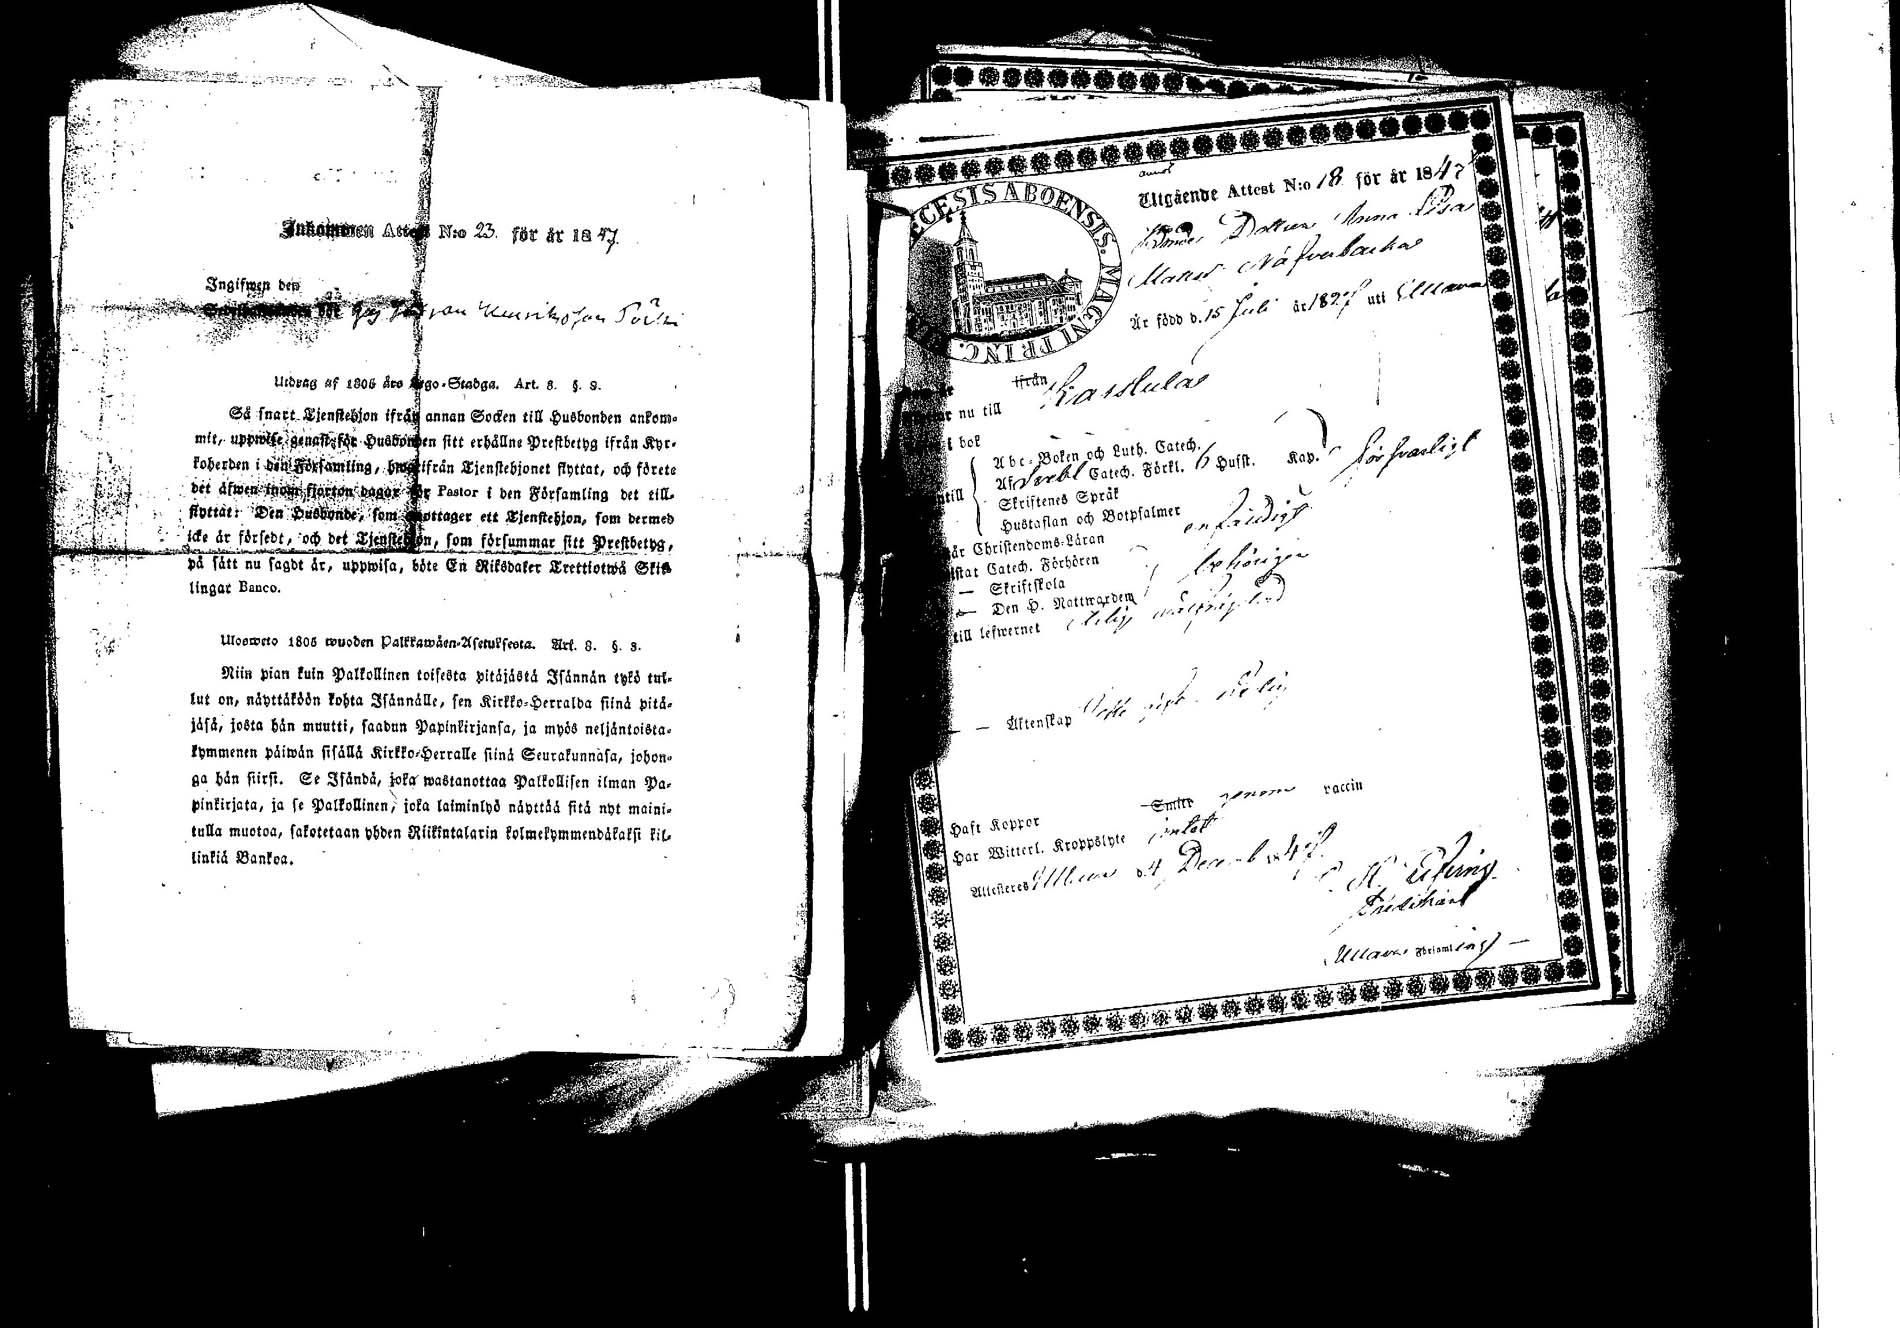 Inkommen Attest N:o 23. för år 1847.
Ingifwen den
hos
Utdrag af 1805 års Lego-Stadga. Art. 8. §. 8.
Så snart Tjenstehjon ifrån annan Socken till Husbonden ankom-
mit, uppwise genast för Husbonden sitt erhållne Prestbetyg ifrån Kyr-
koherden i den Församling, hwarifrån Tjenstehjonet flyttat, och förete
det äfwen inom fjorton dagar för Pastor i den Församling det till-
flyttat: Den Husbonde, som emottager ett Tjenstehjon, som dermed
icke är försedt, och det Tjenstehjon, som försummar sitt Prestbetyg,
på sätt nu sagdt är, uppwisa, böte En Riksdaler Trettiotwå Skil-
lingar Banco.
Uloswето 1805 wuoden Palkkawäen-Asetuksesta. Art. 8. §. 8.
Niin pian kuin Palkollinen toisesta pitäjästä Isännän tykö tul-
lut on, näyttäköön kohta Isännälle, sen Kirkko-Herralda siinä pitä-
jäsä, josta hän muutti, saadun Papinkirjansa, ja myös neljäntoista-
kymmenen päiwän sisällä Kirkko-Herralle siinä Seurakunnasa, johon-
ga hän siirsi. Se Isändä, joka wastanottaa Palkollisen ilman Pa-
pinkirjata, ja se Palkollinen, joka laiminlyö näyttää sitä nyt maini-
tulla muotoa, sakotetaan yhden Riikintalarin kolmekymmendäkaksi kil-
lingiä Bankoa.
ECESIS ABOENSIS. MAGNI PRINC.
Utgående Attest N:o 18 för år 1847
Bonde Dottren Anna Lisa
Matts
Är född d. 15 Juli år 1827 uti Ullava
ifrån
nu till Karstula
bok
Abc-Boken och Luth. Catech.
Af Svebel Catech. Förkl. 6 Husst. Kap. försvarligt
Skriftenes Språk
Hustaflan och Botpsalmer
Christendoms-Läran enfaldigt
Catech. Förhören
— Skriftskola behörigen
— Den H. Nattwarden
till lefwernet ärlig
— — Äktenskap ledig
Haft Koppor Smitt genom vaccin
Har Witterl. Kroppslyte intet
Attesteres Ullava d. 4 Decemb 1847.
Predikant
Ullava Församling —